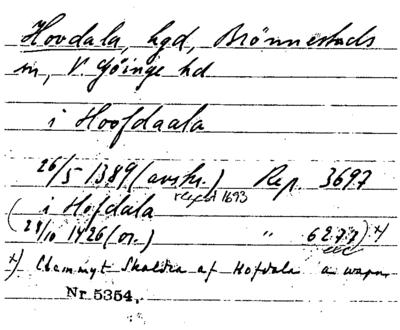 Hovdala, hgd, Brönnestads
sn, V. Göinge hd
i Hoofdaala
26/5 1389 (avskr.) Rep. 3697
regest 1693
(i Hofdala
28/10 1426 (or.) " 6277) x)
x) Clemmyt Skaldra af Hofdala a wapn
Nr. 5354.